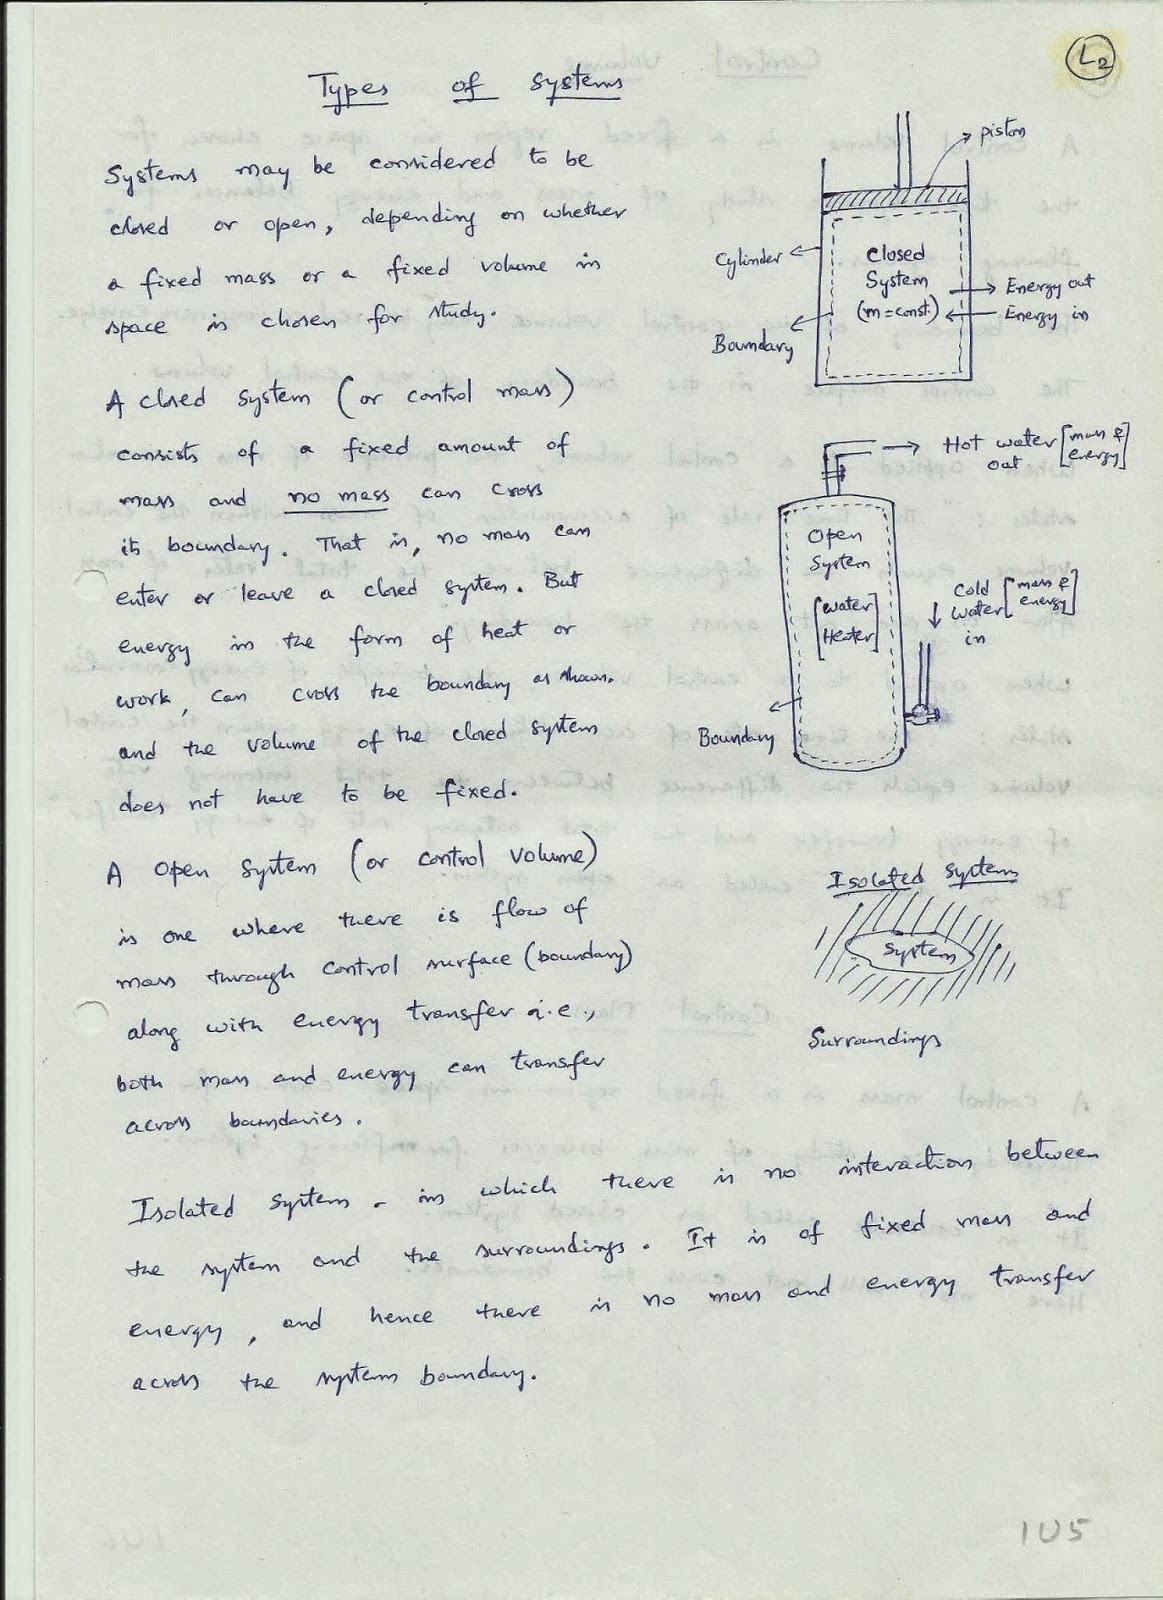 L2
Types of systems
Systems may be considered to be
closed or open, depending on whether
a fixed mass or a fixed volume in
space is chosen for study.
A closed system (or control mass)
consists of a fixed amount of
mass and no mass can cross
its boundary. That is, no mass can
enter or leave a closed system. But
energy in the form of heat or
work, can cross the boundary as shown.
and the volume of the closed system
does not have to be fixed.
A open system (or control volume)
is one where there is flow of
mass through control surface (boundary)
along with energy transfer i.e.,
both mass and energy can transfer
across boundaries.
Isolated system - in which there is no interaction between
the system and the surroundings. It is of fixed mass and
energy, and hence there is no mass and energy transfer
across the system boundary.
piston
Cylinder
Closed
System
(m = const.)
Energy out
Energy in
Boundary
Hot water [mass &
out energy]
Open
System
[Water
Heater]
Cold [mass &
water energy]
in
Boundary
Isolated system
System
Surroundings
105